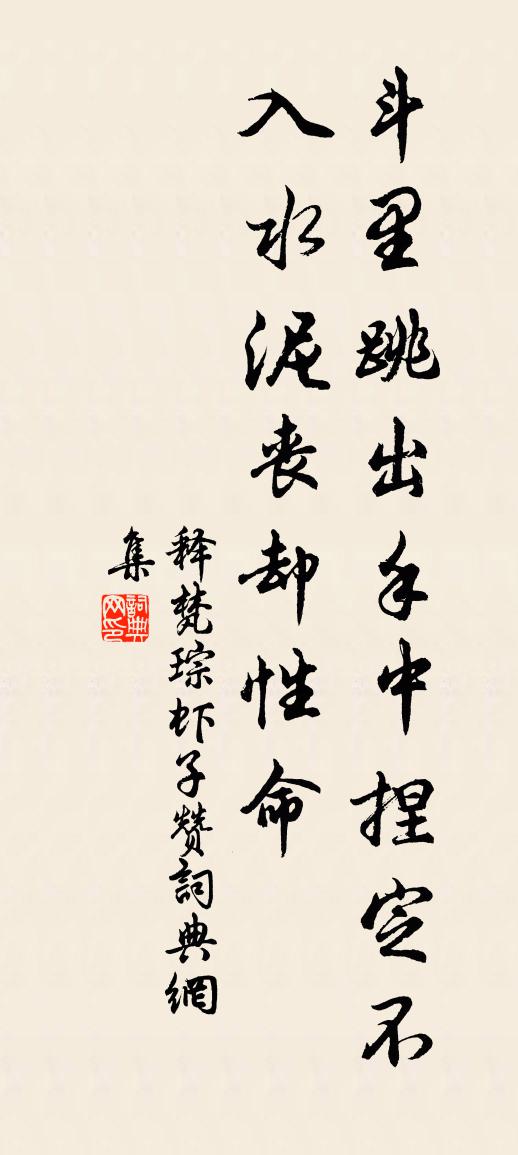 斗里跳出手中捏定不
入水泥丧却性命
释梵琮虾子赞詞典網
集
詞典
网印